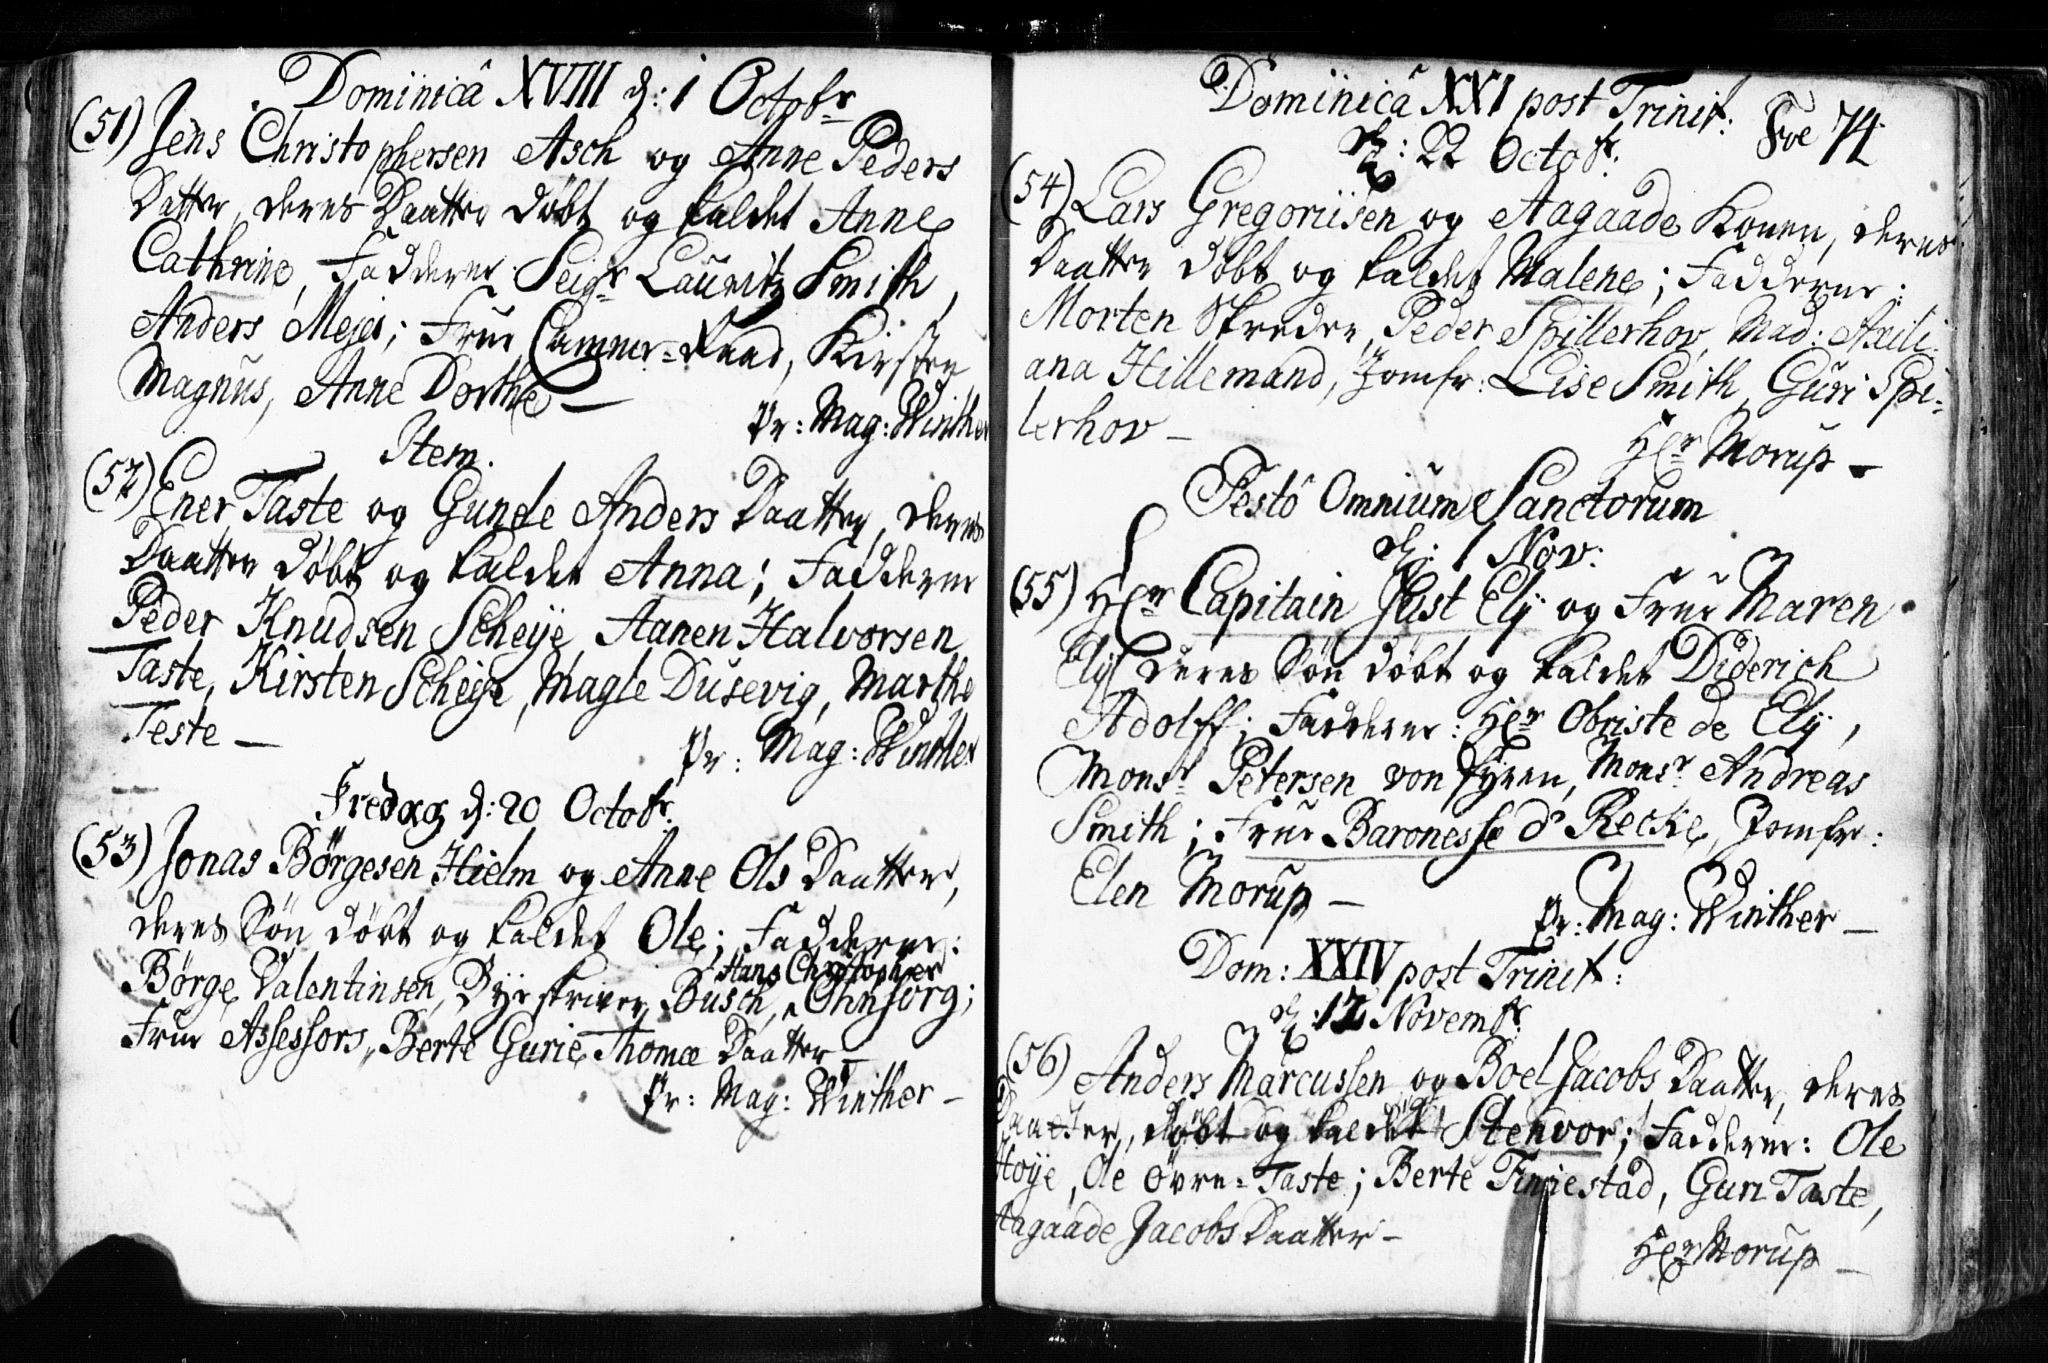 Dominicâ XVIII d: 1 Octobr
(51) Jens Christophersen Asch og Anne Peders
Datter, deres Daatter døbt og kaldet Anne
Cathrine, Fadderne: Seigr Lauritz Smith,
Anders Mejer; Frue Cammer=Raad, Kirsten
Magnus, Anne Dorthe —
Pr: Mag: Winther
Item.
(52) Ener Taste og Gunele Anders Daatter, deres
Daatter døbt og kaldet Anna; Fadderne
Peder Knudsen Scheije, Aanen Halvorsen
Taste, Kirsten Scheije, Magle Dusevig, Marthe
Teste —
Pr: Mag: Winther
Fredag d: 20 Octobr.
(53) Jonas Børgesen Hielm og Anne Ols Daatter,
deres Søn døbt og kaldet Ole; Fadderne:
Hans Christopher
Børge Valentinsen, Byeskriver Busch, Ohnsorg;
Frue Assessors, Berte Gurie Thomæ Daatter —
Pr: Mag: Winther —
Dominicâ XXI post Trinit:
d: 22 Octobr.
Foe 74
(54) Lars Gregoriisen og Aagaade Konen, deres
Daatter døbt og kaldet Malene; Fadderne:
Morten Skreder, Peder Spillerhov, Mad: Axili-
ana Hillemand, Jomfr: Lise Smith, Guri Spi=
lerhov —
Hr Morup —
Festô Omnium Sanctorum
d: 1 Nov:
(55) Hr Capitain Just Ely og Frue Maren
Ely deres Søn døbt og kaldet Diderich
Adolff; Fadderne: Hr Obriste de Ely,
Monsr Petersen von Fyren, Monsr Andreas
Smith; Frue Baronesse d' Recke, Jomfr:
Elen Morup —
Pr: Mag: Winther —
Dom: XXIV post Trinit:
d: 12 Novembr.
(56) Anders Marcussen og Boel Jacobs Daatter, deres
Daatter, døbt og kaldet Stenvor; Fadderne: Ole
Høye, Ole Øvre=Taste; Berte Finnestad, Guri Taste,
Aagaade Jacobs Daatter —
Hr Morup —